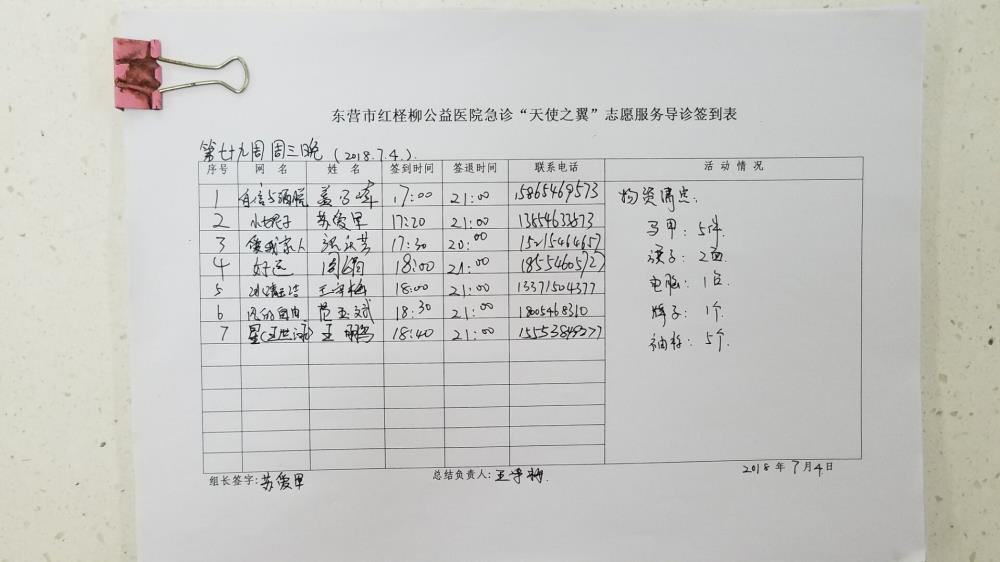 东营市红柽柳公益医院急诊“天使之翼”志愿服务导诊签到表
第廿九周周三晚 (2018.7.4.)
序号 网名 姓名 签到时间 签退时间 联系电话 活动情况
1 自信与洒脱 17:00 21:00 15865469573
物资清点:
2 苏爱军 17:20 21:00
马甲: 5件
3 爱我家人 17:30 20:00 15215464657
旗子: 2面
4 好运 18:00 21:00 18554605727
电脑: 1台
5 冰清玉洁 王守梅 18:00 21:00 13371504377
牌子: 1个
6 风的自由 范玉斌 18:30 21:00 1805468310
袖标: 5个
7 王鹏 18:40 21:00
组长签字: 苏爱军 总结负责人: 王守梅 2018年7月4日